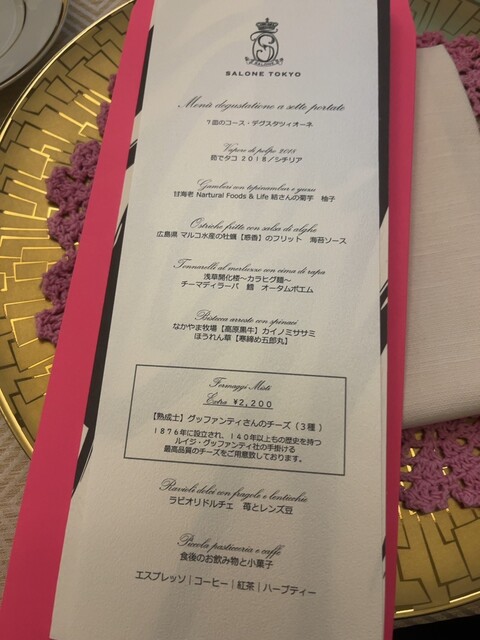 SALONE
SALONE TOKYO
Menù degustazione a sette portate
7皿のコース・デグスタツィオーネ
Vapore di polpo 2018
茹でタコ 2018/シチリア
Gamberi con topinambur e yuzu
甘海老 Nartural Foods & Life 結さんの菊芋 柚子
Ostriche fritte con salsa di alghe
広島県 マルコ水産の牡蠣【惑香】のフリット 海苔ソース
Tonnarelli al merluzzo con cima di rapa
浅草開化楼〜カラヒグ麺〜
チーマディラーパ 鱈 オータムポエム
Bistecca arrosto con spinaci
なかやま牧場【高原黒牛】カイノミササミ
ほうれん草【寒締め五郎丸】
Formaggi Misti
Extra ¥2,200
【熟成士】グッファンティさんのチーズ(3種)
1876年に設立され、140年以上もの歴史を持つ
ルイジ・グッファンティ社の手掛ける
最高品質のチーズをご用意致しております。
Ravioli dolci con fragole e lenticchie
ラビオリドルチェ 苺とレンズ豆
Piccola pasticceria e caffè
食後のお飲み物と小菓子
エスプレッソ|コーヒー|紅茶|ハーブティー